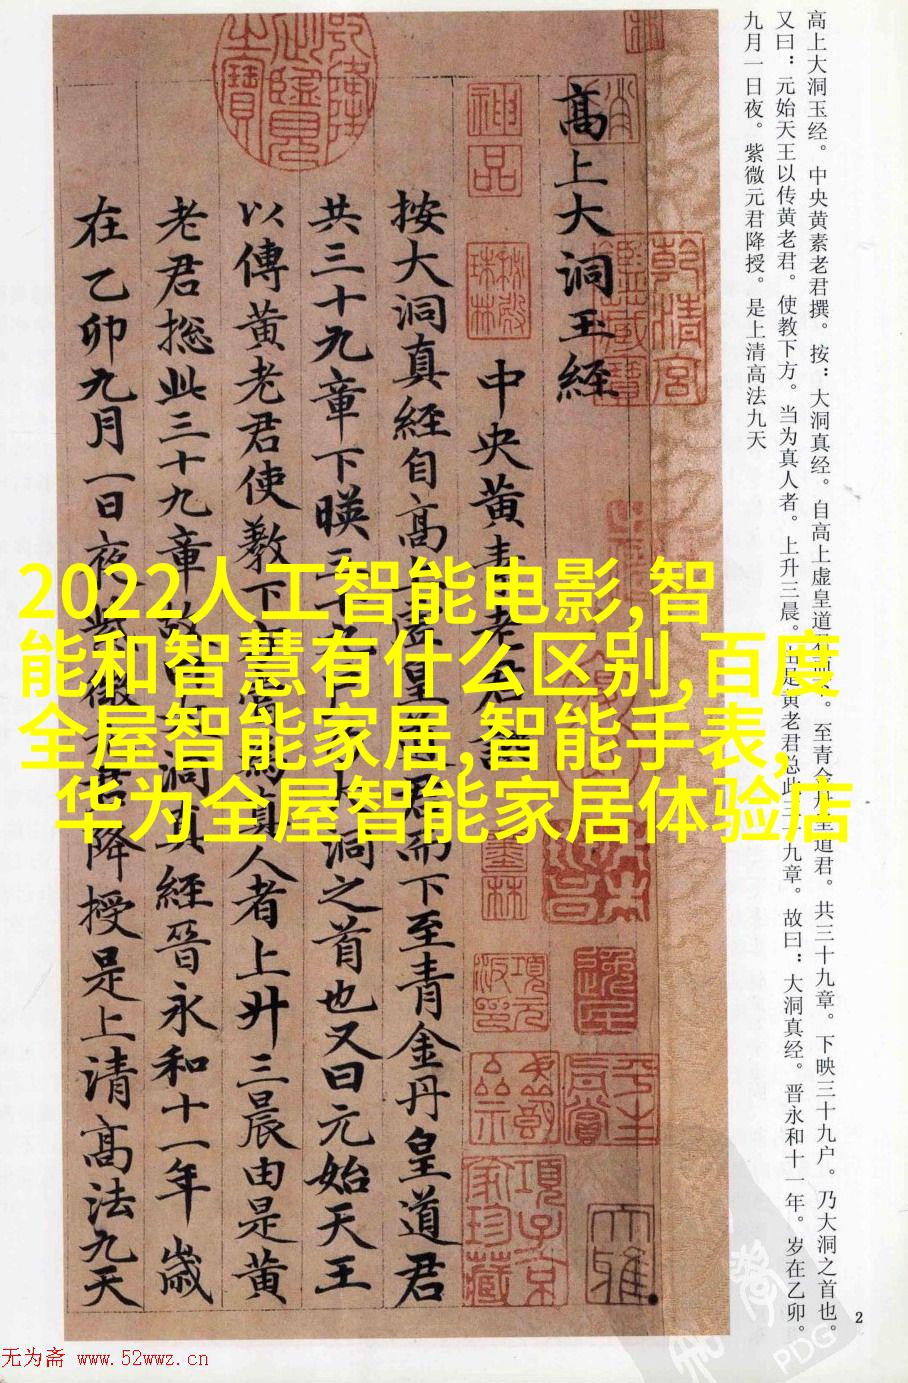 高上大洞玉经。中央黄素老君撰。按：大洞真经。自高上虚皇道君而下。至青金丹皇道君。共三十九章。下映三十九户。乃大洞之首也。
又曰：元始天王以传黄老君。使教下方。当为真人者。上升三晨。由是黄老君总此三十九章。故曰：大洞真经。晋永和十一年。岁在乙卯。
九月一日夜。紫微元君降授。是上清高法九天
高上大洞玉經
中央黄素老君譔
按大洞真經自高上虚皇道君而下至青金丹皇道君
共三十九章下暎三十九户乃大洞之首也又曰元始天王
以傳黄老君使教下方當為真人者上升三晨由是黄
老君摠此三十九章故曰大洞真經晉永和十一年歳
在乙卯九月一日夜紫微元君降授是上清高法九天
神品
乾清宫鑑藏寶
項元汴印
項子京家珍藏
平生真賞
大雅
2022人工智能电影,智
能和智慧有什么区别,百度
全屋智能家居,智能手表,
华为全屋智能家居体验店
2
PDG
无为斋 www.52wwz.cn